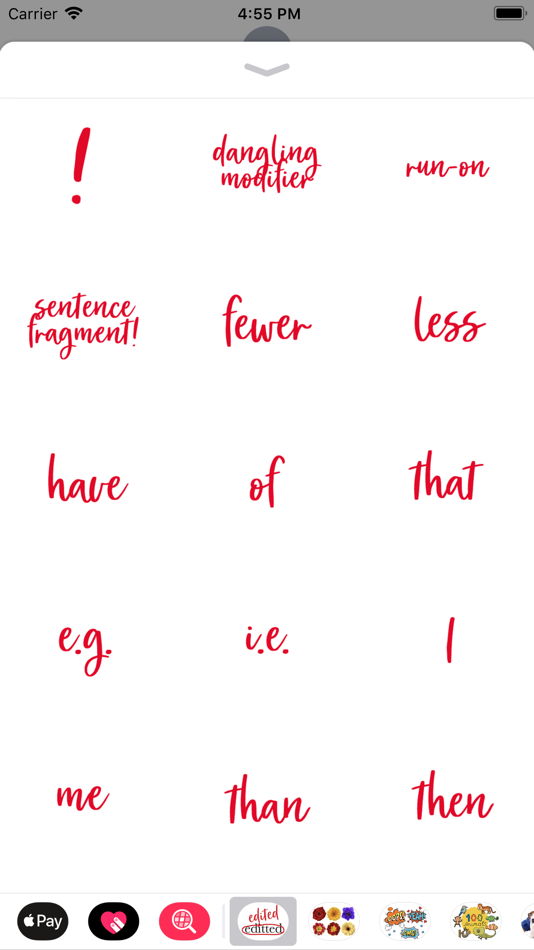 Carrier
4:55 PM
!
dangling
modifier
run-on
sentence
fragment!
fewer
less
have
of
that
e.g.
i.e.
I
me
than
then
Pay
edited
editted
100
animals